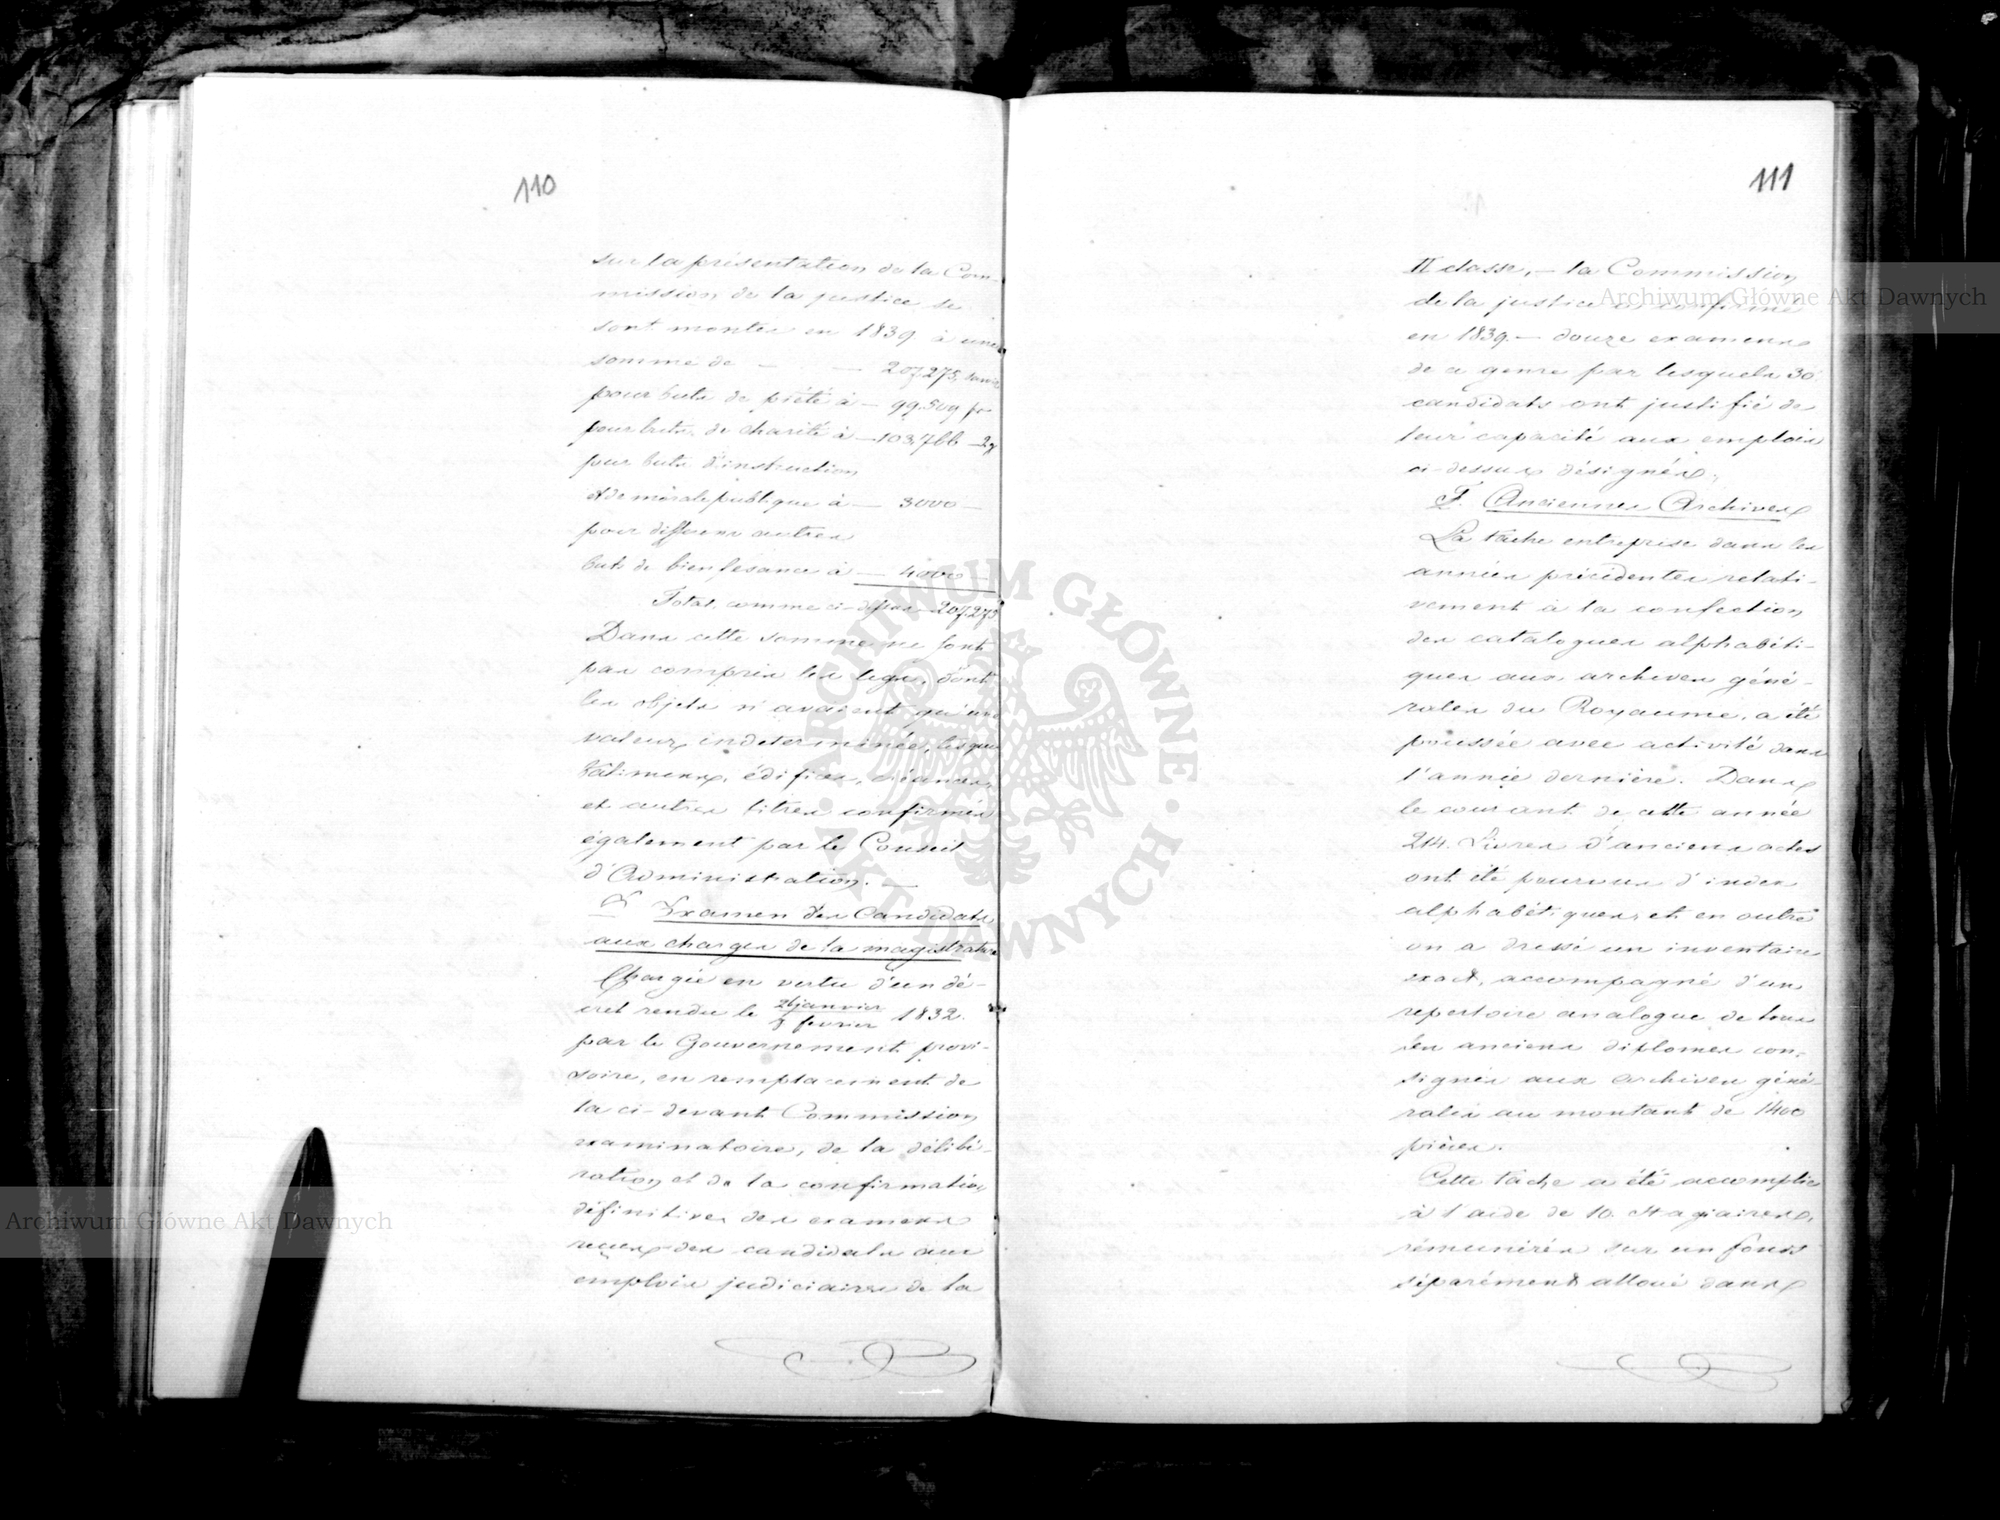 110
sur la présentation de la Com-
mission de la justice se
sont montés en 1839 à une
somme de — — 207,275, savoir
pour buts de piété à — 99.509
pour buts de charité à — 103,766 —
pour buts d'instruction
et de morale publique à — 3000 —
pour differens autres
buts de bienfesance à — 4000 —
Total, comme ci-dessus — 207,275
Dans cette somme ne sont
pas compris les legs, dont
les objets n'avaient qu'une
valeur indeterminée, tels que
bâtimens, édifices, créances,
et autres titres confirmés
également par le Conseil
d'Administration. —
Examen des Candidats
aux charges de la magistrature
Chargée en vertu d'un dé-
cret rendu le janvier 1832.
février
par le Gouvernement provi-
soire, en remplacement de
la ci-devant Commission
examinatoire, de la délibé-
ration et de la confirmation
définitive des examens
reçus des candidats aux
emplois judiciaires de la
111
II classe, — la Commission
de la justice a confirmé
en 1839 — douze examens
de ce genre par lesquels 30
candidats ont justifié de
leur capacité aux emplois
ci-dessus désignés.
F. Anciennes Archives
La tâche entreprise dans les
années précédentes relati-
vement à la confection
des catalogues alphabéti-
ques aux archives géné-
rales du Royaume, a été
poussée avec activité dans
l'année dernière. Dans
le courant de cette année
214. Livres d'anciens actes
ont été pourvus d'index
alphabétiques, et en outre
on a dressé un inventaire
exact, accompagné d'un
repertoire analogue de tous
les anciens diplomes con-
signés aux archives géné-
rales au montant de 1400
pièces.
Cette tâche a été accomplie
à l'aide de 10 stagiaires,
rémunérés sur un fonds
séparément alloué dans
Archiwum Główne Akt Dawnych
Archiwum Główne Akt Dawnych
ARCHIWUM GŁÓWNE
AKT DAWNYCH